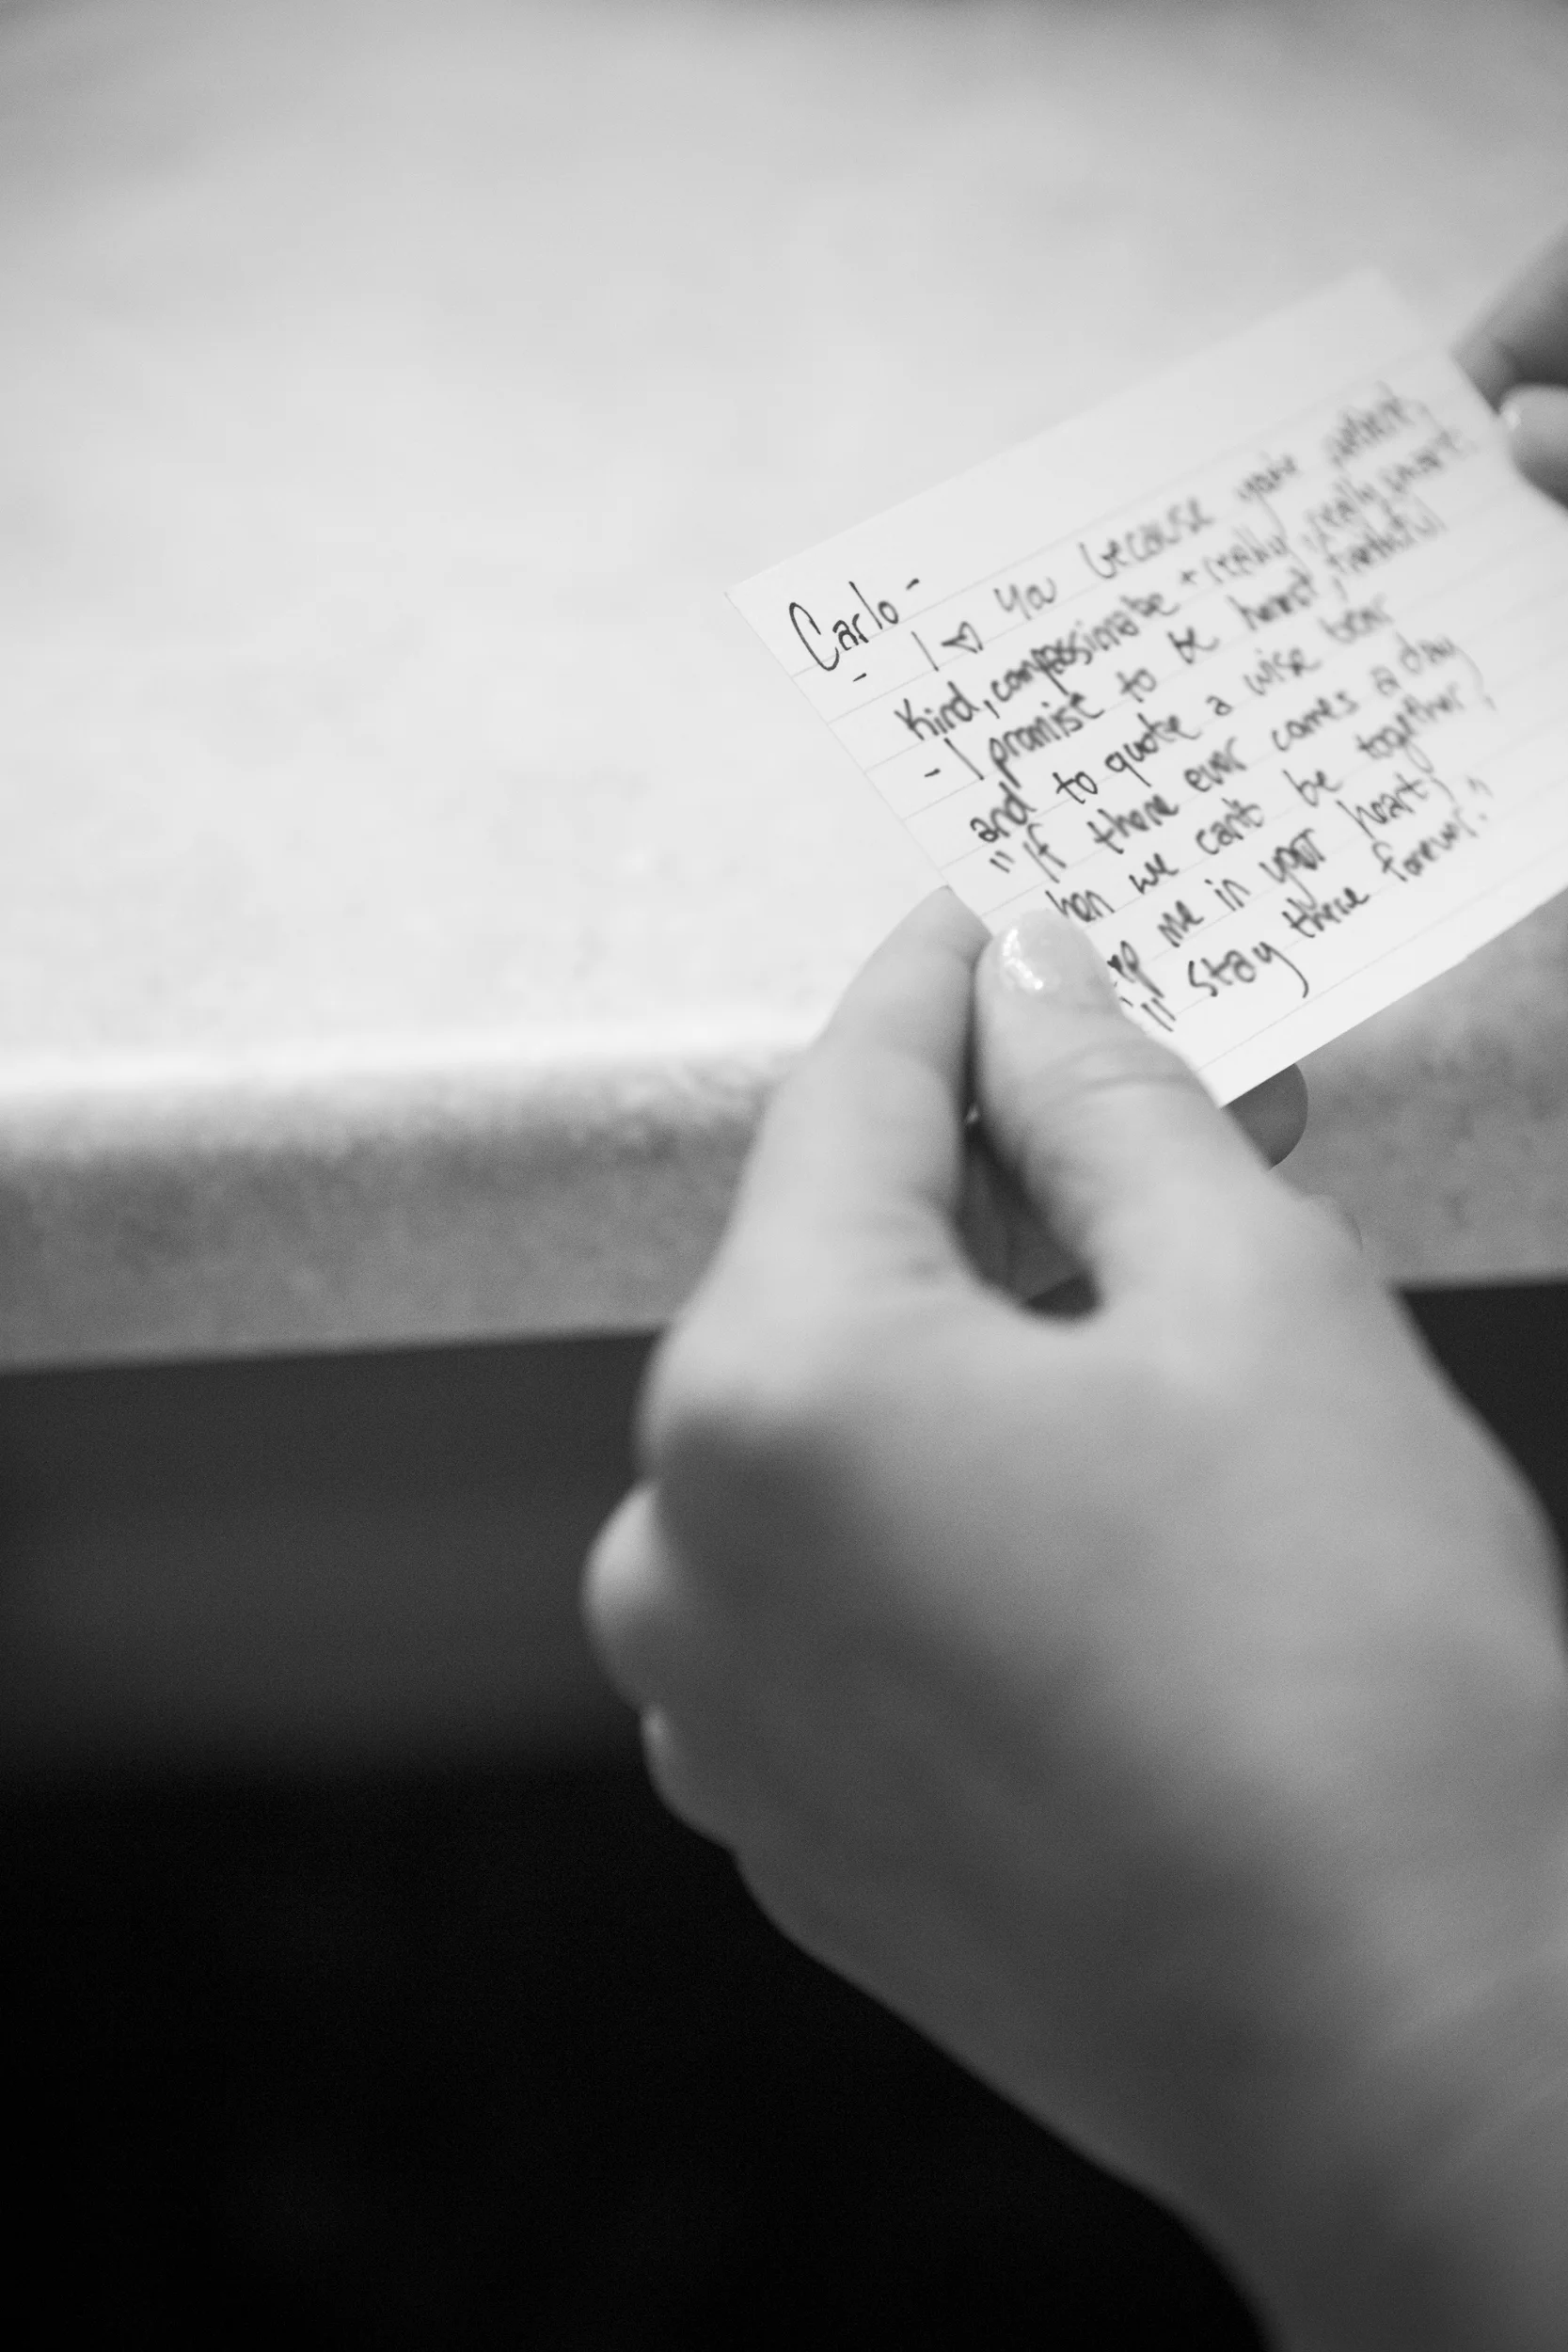 Carlo -
- I ♡ you because you're patient,
kind, compassionate + really, really smart.
- I promise to be honest, faithful
and to quote a wise bear
"If there ever comes a day
hen we can't be together,
ep me in your heart,
'll stay there forever."